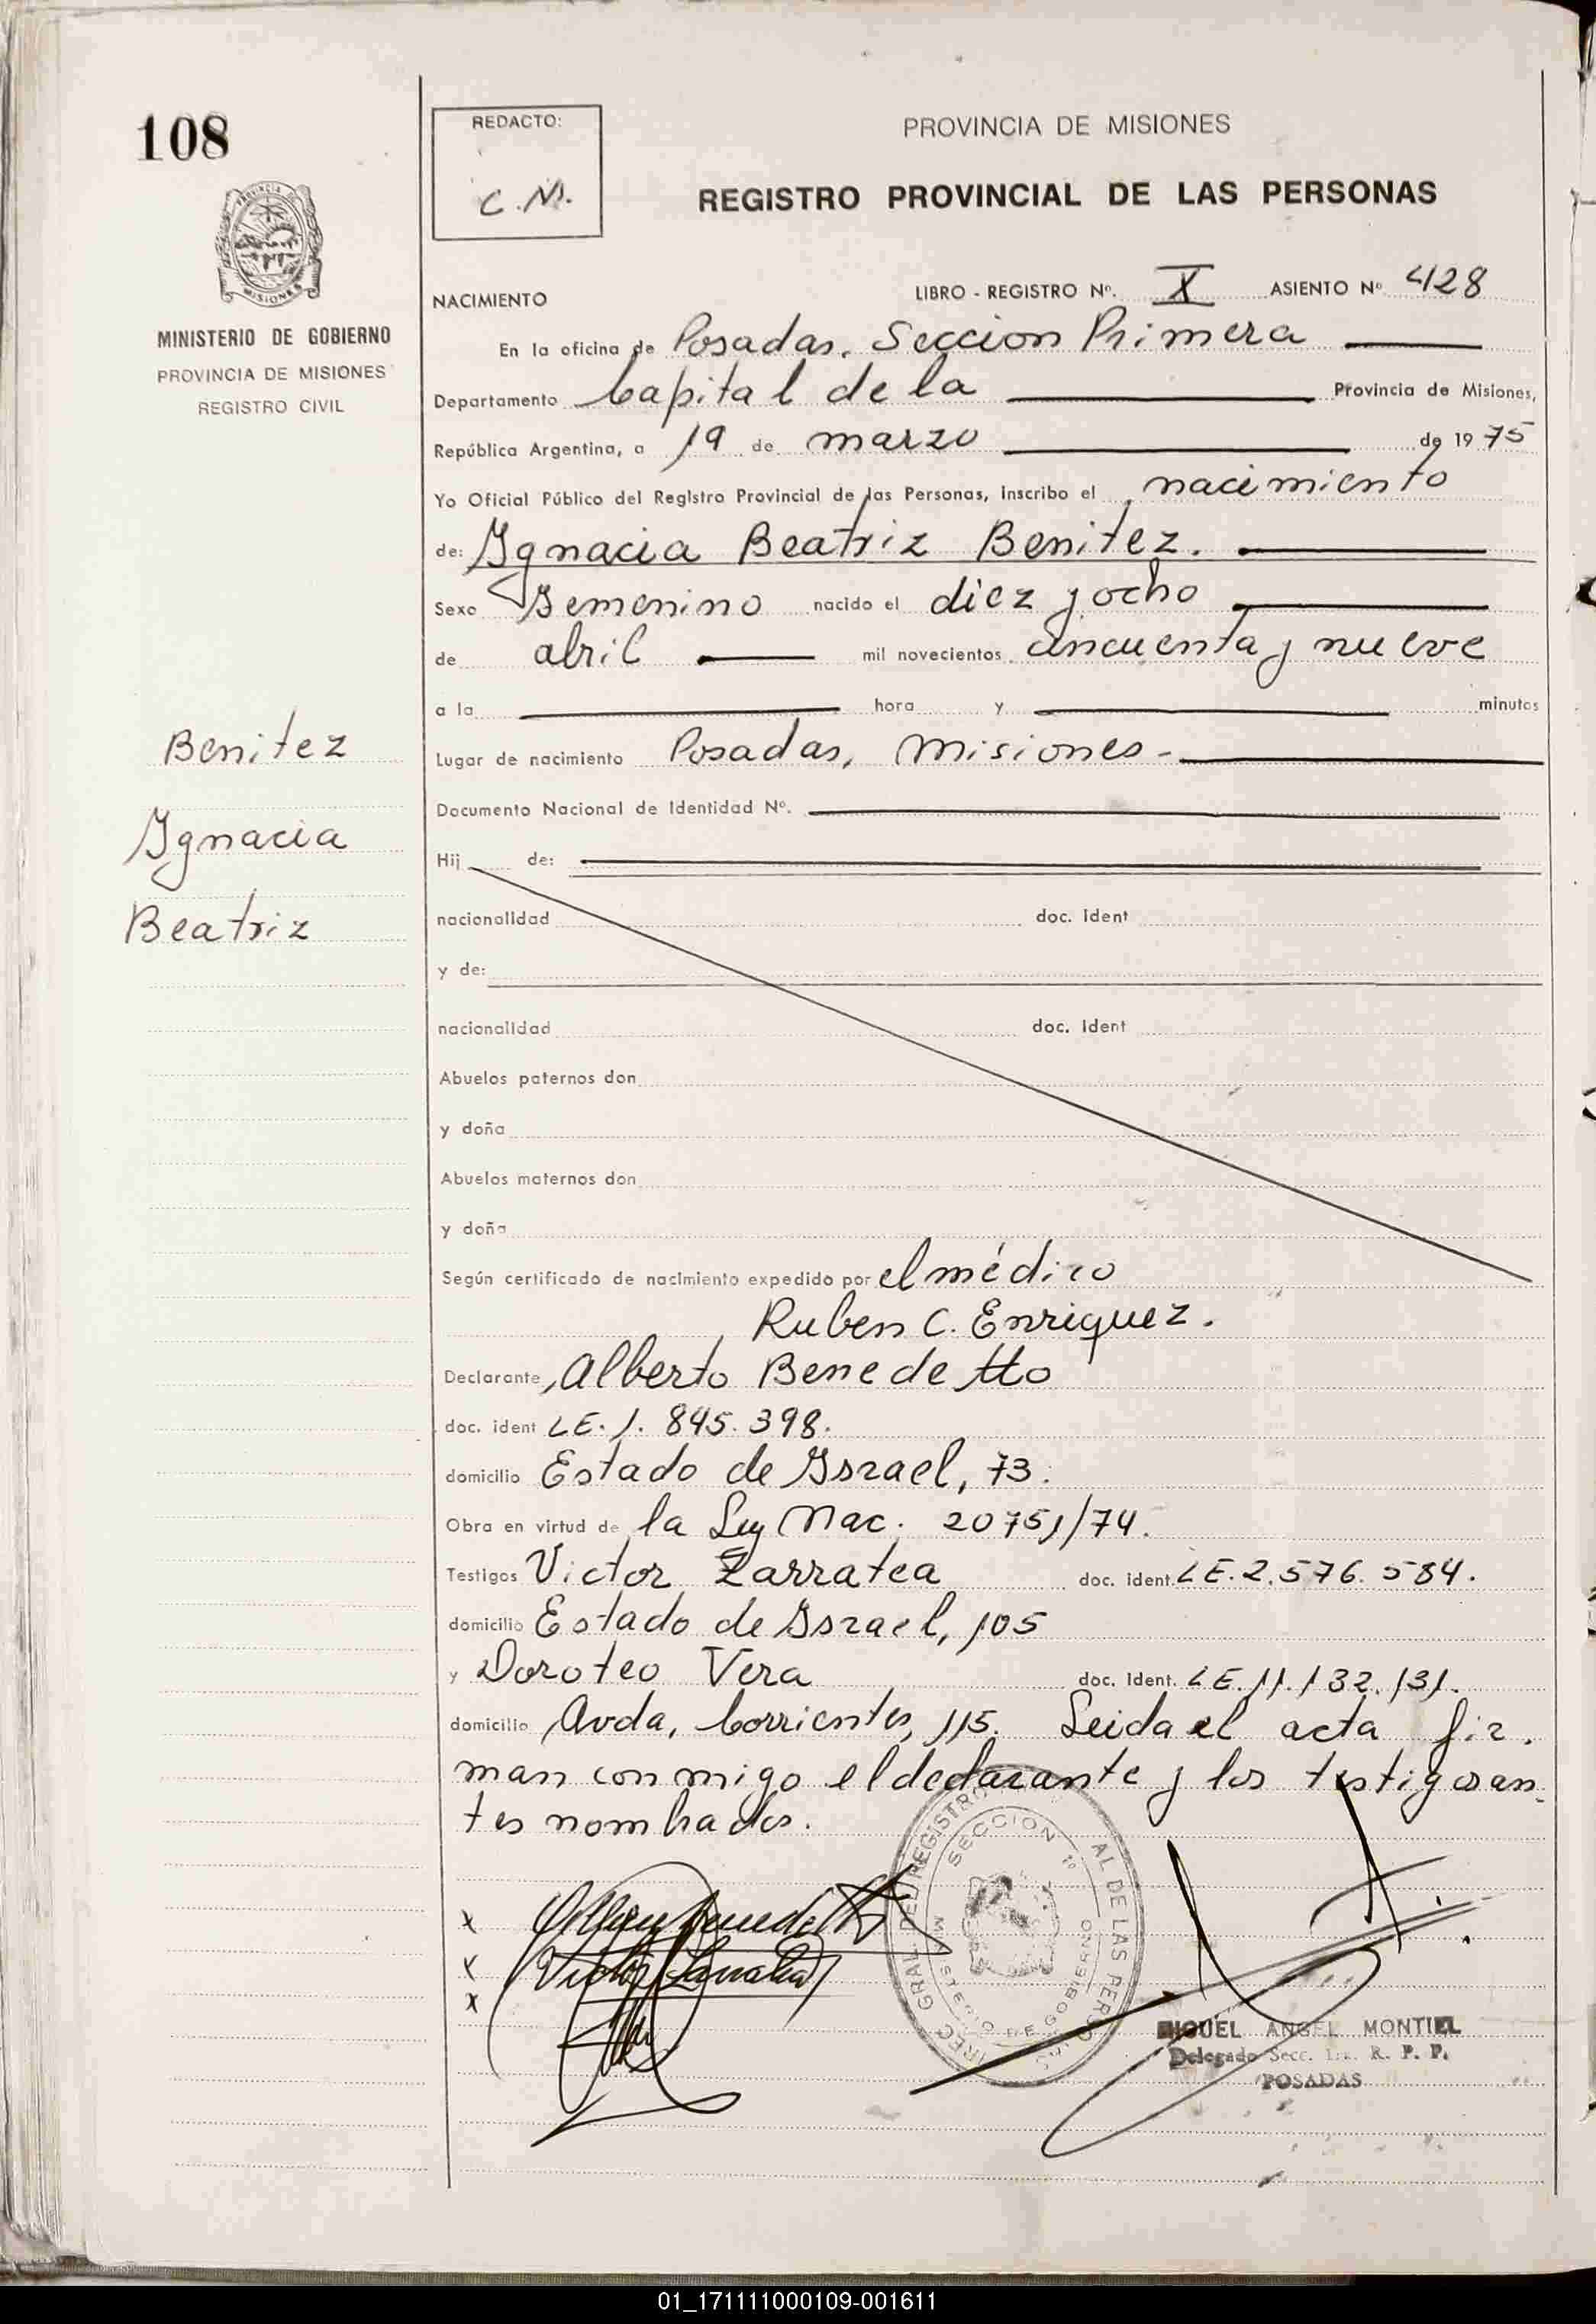 108
REDACTO:
C.M.
PROVINCIA DE MISIONES
REGISTRO PROVINCIAL DE LAS PERSONAS
MISIONES
MINISTERIO DE GOBIERNO
PROVINCIA DE MISIONES
REGISTRO CIVIL
NACIMIENTO
LIBRO - REGISTRO Nº. X ASIENTO Nº 428
En la oficina de Posadas, Seccion Primera
Departamento Capital de la Provincia de Misiones,
República Argentina, a 19 de marzo de 1975
Yo Oficial Público del Registro Provincial de las Personas, inscribo el nacimiento
de: Ygnacia Beatriz Benitez.
Sexo Femenino nacido el diez y ocho
de abril mil novecientos cincuenta y nueve
a la hora y minutos
Benitez
Lugar de nacimiento Posadas, Misiones-
Documento Nacional de Identidad Nº.
Ygnacia
Hij de:
Beatriz
nacionalidad doc. ident
y de:
nacionalidad doc. ident
Abuelos paternos don
y doña
Abuelos maternos don
y doña
Según certificado de nacimiento expedido por el médico
Ruben C. Enriquez.
Declarante, Alberto Benedetto
doc. ident LE. 1. 845. 398.
domicilio Estado de Ysrael, 73.
Obra en virtud de la Ley Nac. 20751/74.
Testigos Victor Zarratea doc. ident. LE. 2. 576. 584.
domicilio Estado de Ysrael, 105
y Doroteo Vera doc. ident. LE. 11. 132. 131.
domicilio Avda, Corrientes, 115. Leida el acta fir.
man conmigo el declarante y los testigos an-
tes nombrados.
SECCION 1º
MINISTERIO DE GOBIERNO
x
x
x
MIGUEL ANGEL MONTIEL
Delegado Secc. 1ra. R. P. P.
POSADAS
01_171111000109-001611